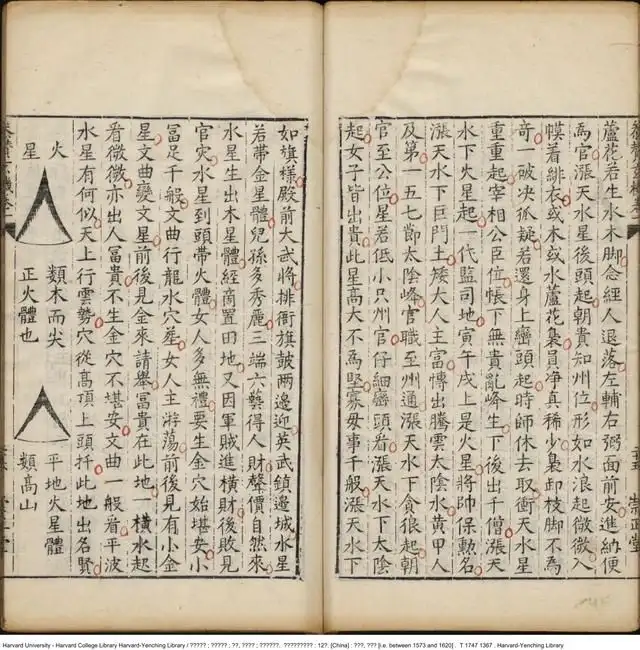 蘆花若生水木脚念經人退落左輔右弼面前安進納便
爲官漲天水星後頭起朝貴知州位形如水浪起微微入
幞着緋衣或木或水蘆花梟員净真稀少梟卸枝脚不爲
奇一破决狐疑若還身上巒頭起時師休去取衝天水星
重重起宰相公臣位帳下無貴亂峰生下後出千僧漲天
水下火星起一代監司地寅午戌上是火星將帥保勲名
漲天水下巨門土矮大人主富慱出騰雲太陰水黄甲人
及第一五七節太陰峰官職至州通漲天水下貪狼起朝
官至公位星若低小只州官仔細巒頭看漲天水下太陰
起女子皆出貴此星高大不為堅寡母事千般漲天水下
如旗樣殿前大武將排衙旗皷兩邊迎英武鎮邊城水星
若帶金星體兒孫多秀麗三端六藝得人財聲價自然來
水星生出木星體經商置田地又因軍賊進横財後敗見
官灾水星到頭帶火體女人多無禮要生金穴始堪安小
冨足千般文曲行龍水穴差女人主游蕩前後見有小金
星文曲變文星前後見金來請舉冨貴在此地一横水起
看微微亦出人冨貴不生金穴不堪安文曲一般看平波
水星有何似天上行雲勢穴從高頂上頭扦此地出名賢
火星
類木而尖
正火體也
平地火星體
類高山